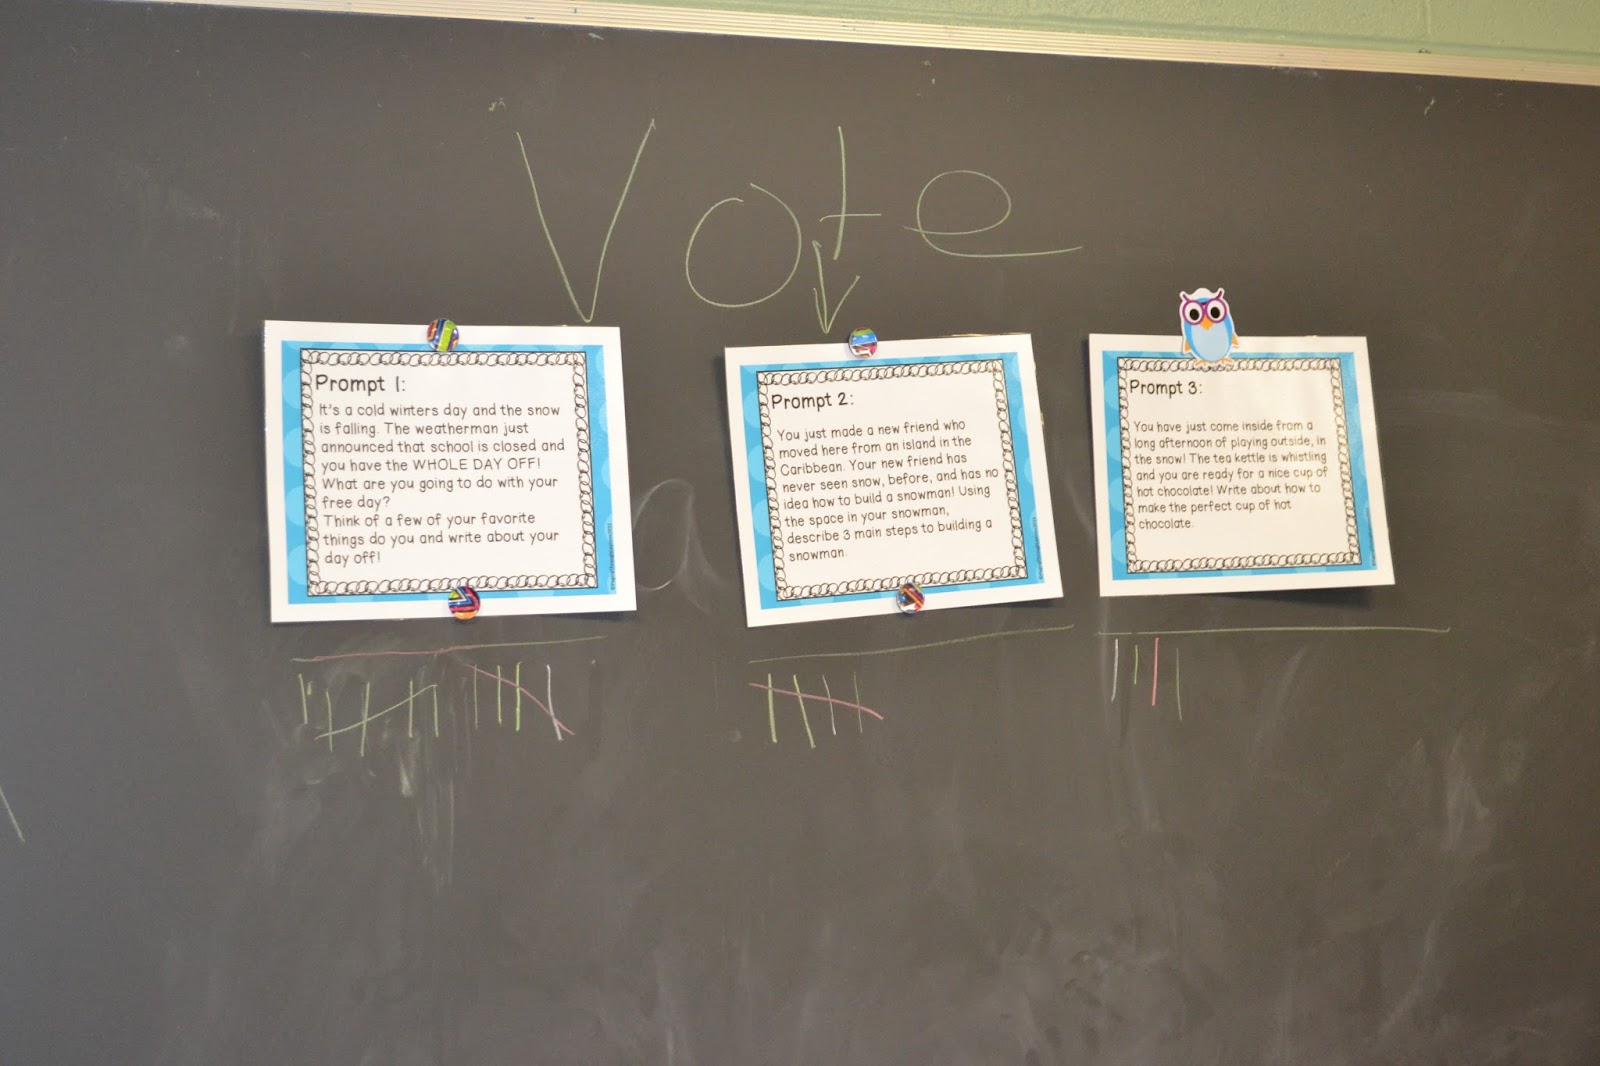 Vote
Prompt 1:
It's a cold winters day and the snow
is falling. The weatherman just
announced that school is closed and
you have the WHOLE DAY OFF!
What are you going to do with your
free day?
Think of a few of your favorite
things do you and write about your
day off!
Prompt 2:
You just made a new friend who
moved here from an island in the
Caribbean. Your new friend has
never seen snow, before, and has no
idea how to build a snowman! Using
the space in your snowman,
describe 3 main steps to building a
snowman.
Prompt 3:
You have just come inside from a
long afternoon of playing outside, in
the snow! The tea kettle is whistling
and you are ready for a nice cup of
hot chocolate! Write about how to
make the perfect cup of hot
chocolate.